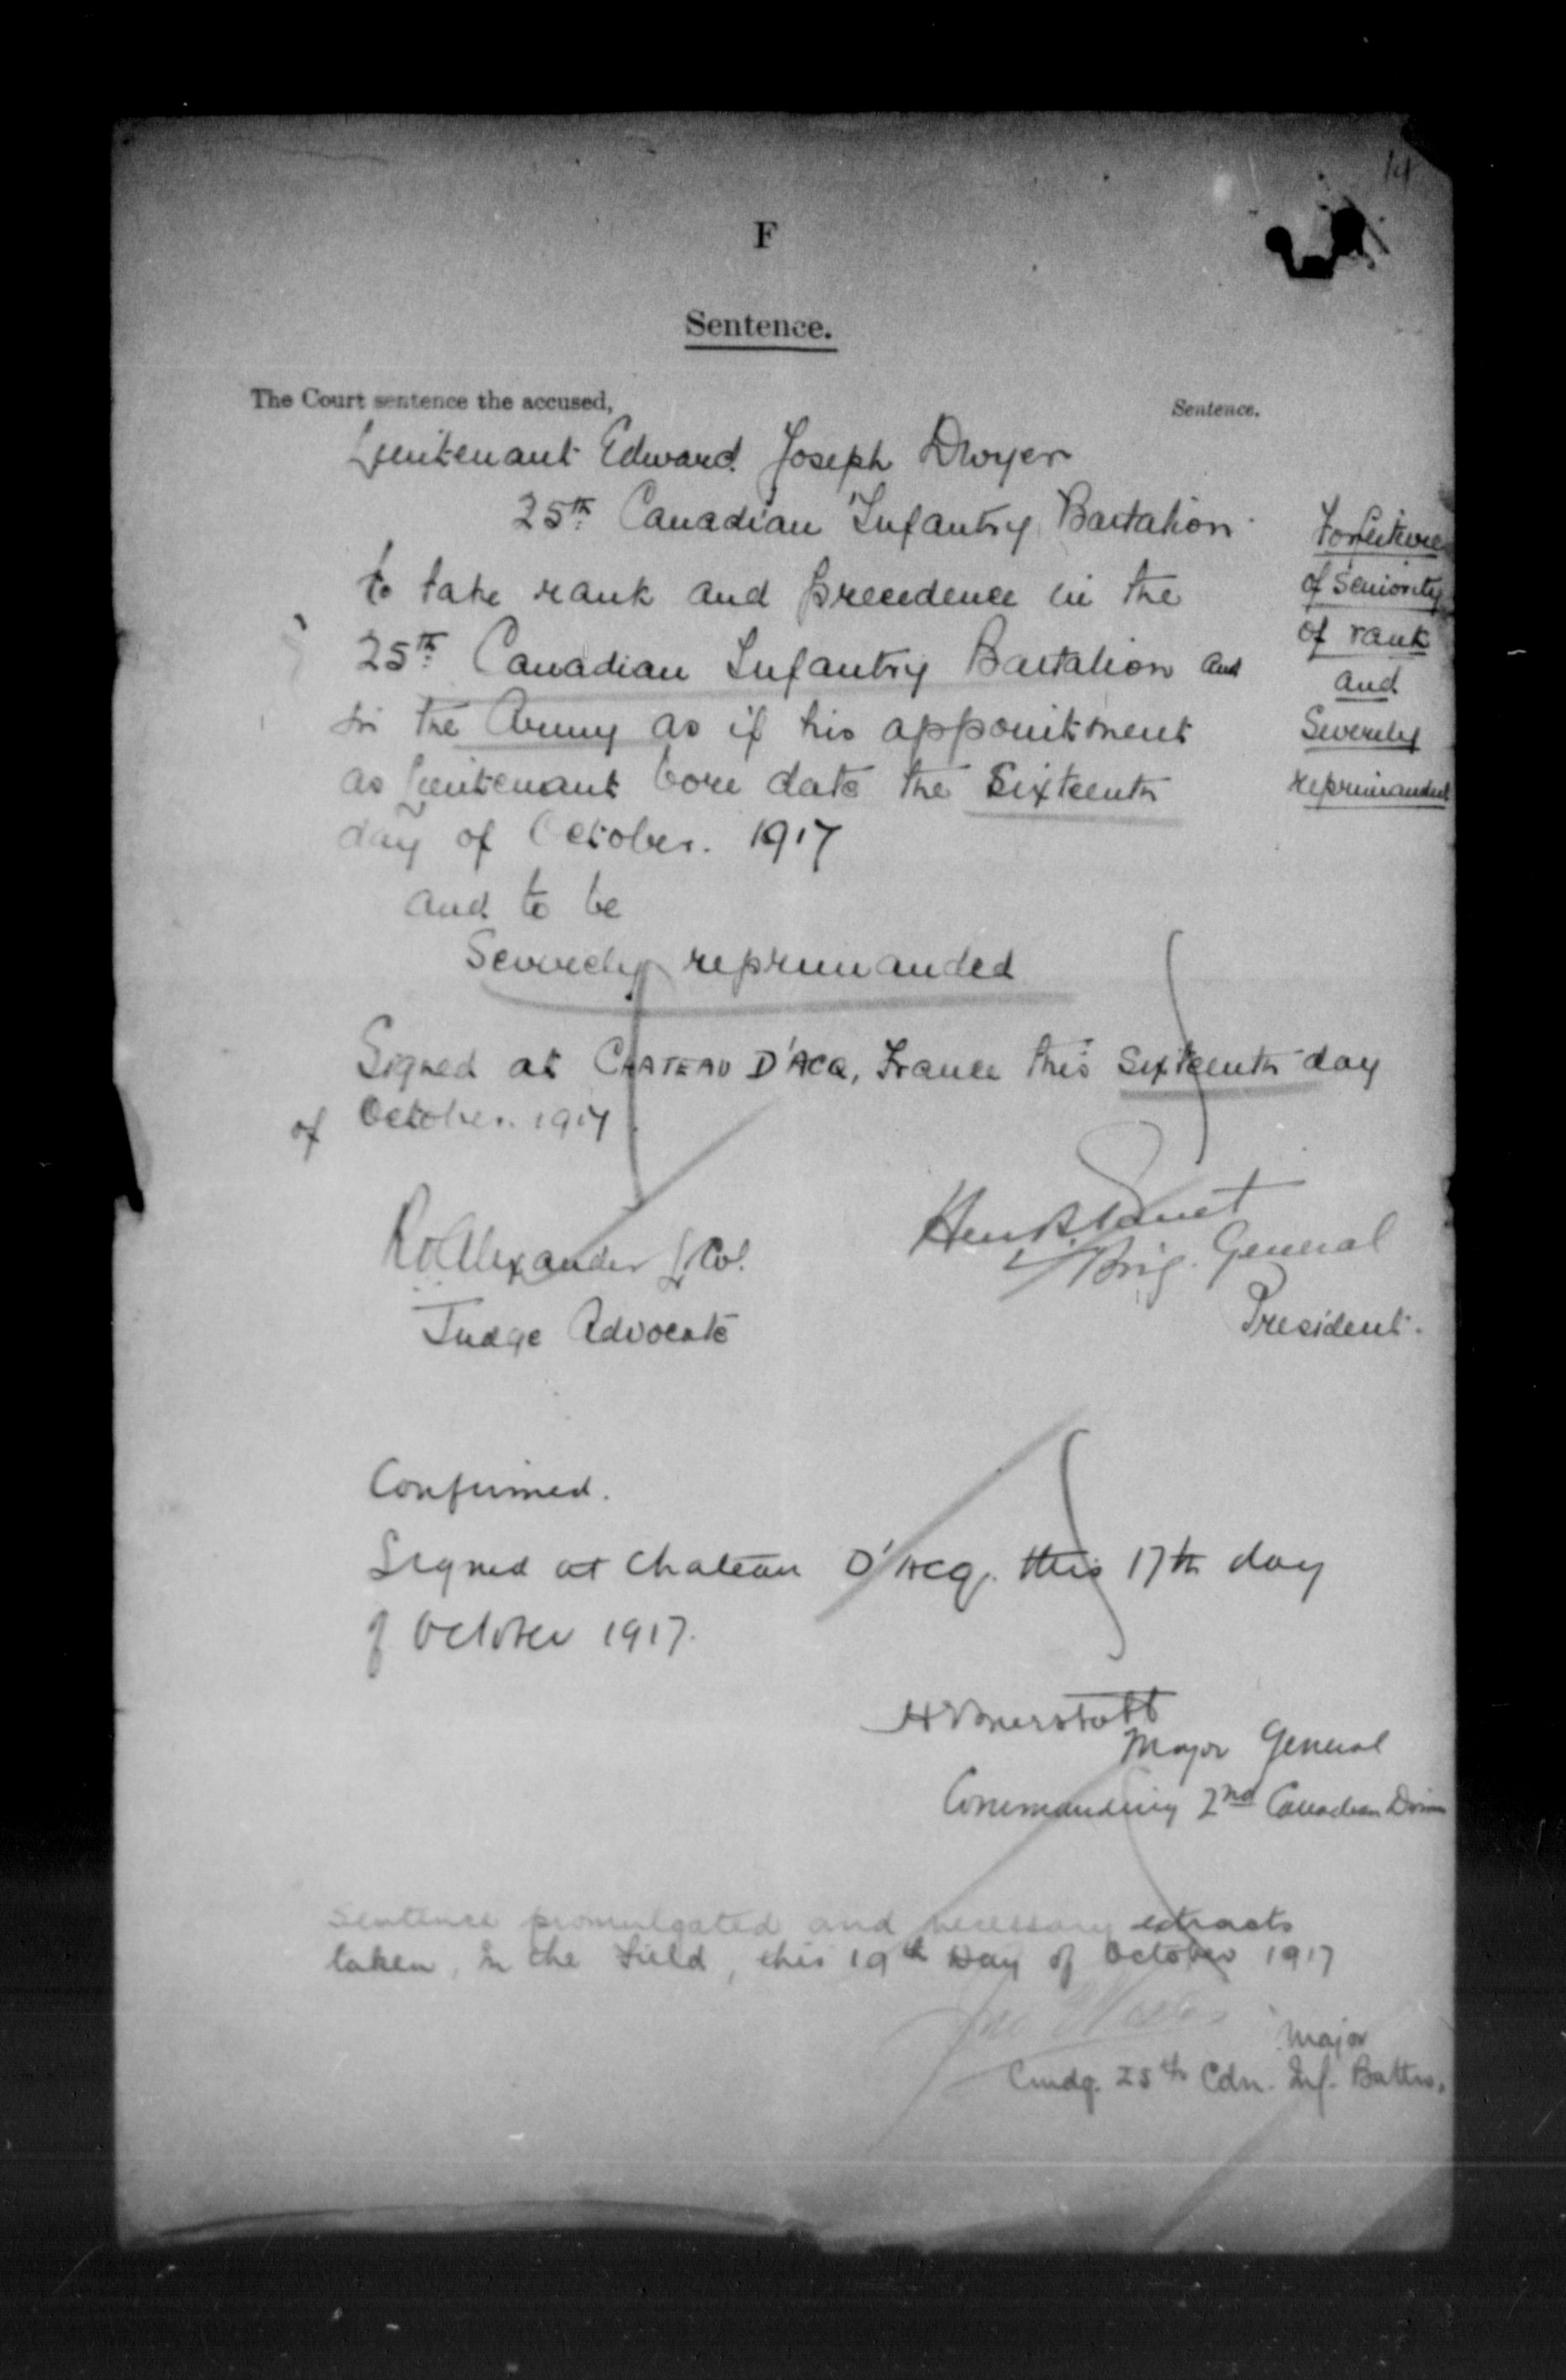 14
F
Sentence.
The Court sentence the accused,
Sentence.
Lieutenant Edward Joseph Dwyer
25th Canadian Infantry Battalion
to take rank and precedence in the
25th Canadian Infantry Battalion and
in the Army as if his appointment
as Lieutenant bore date the Sixteenth
day of October. 1917
and to be
Severely reprimanded
Forfeiture
of seniority
of rank
and
Severely
reprimanded
Signed at CHATEAU D'ACQ, France this Sixteenth day
of October. 1917
Alexander Lt Col.
Judge Advocate
Brig. General
President.
Confirmed.
Signed at Chateau D'Acq. this 17th day
of October 1917.
Major General
Commanding 2nd Canadian Divn
Sentence promulgated and necessary extracts
taken, in the Field, this 19th Day of October 1917
Major
Cmdg. 25th Cdn. Inf. Battn.